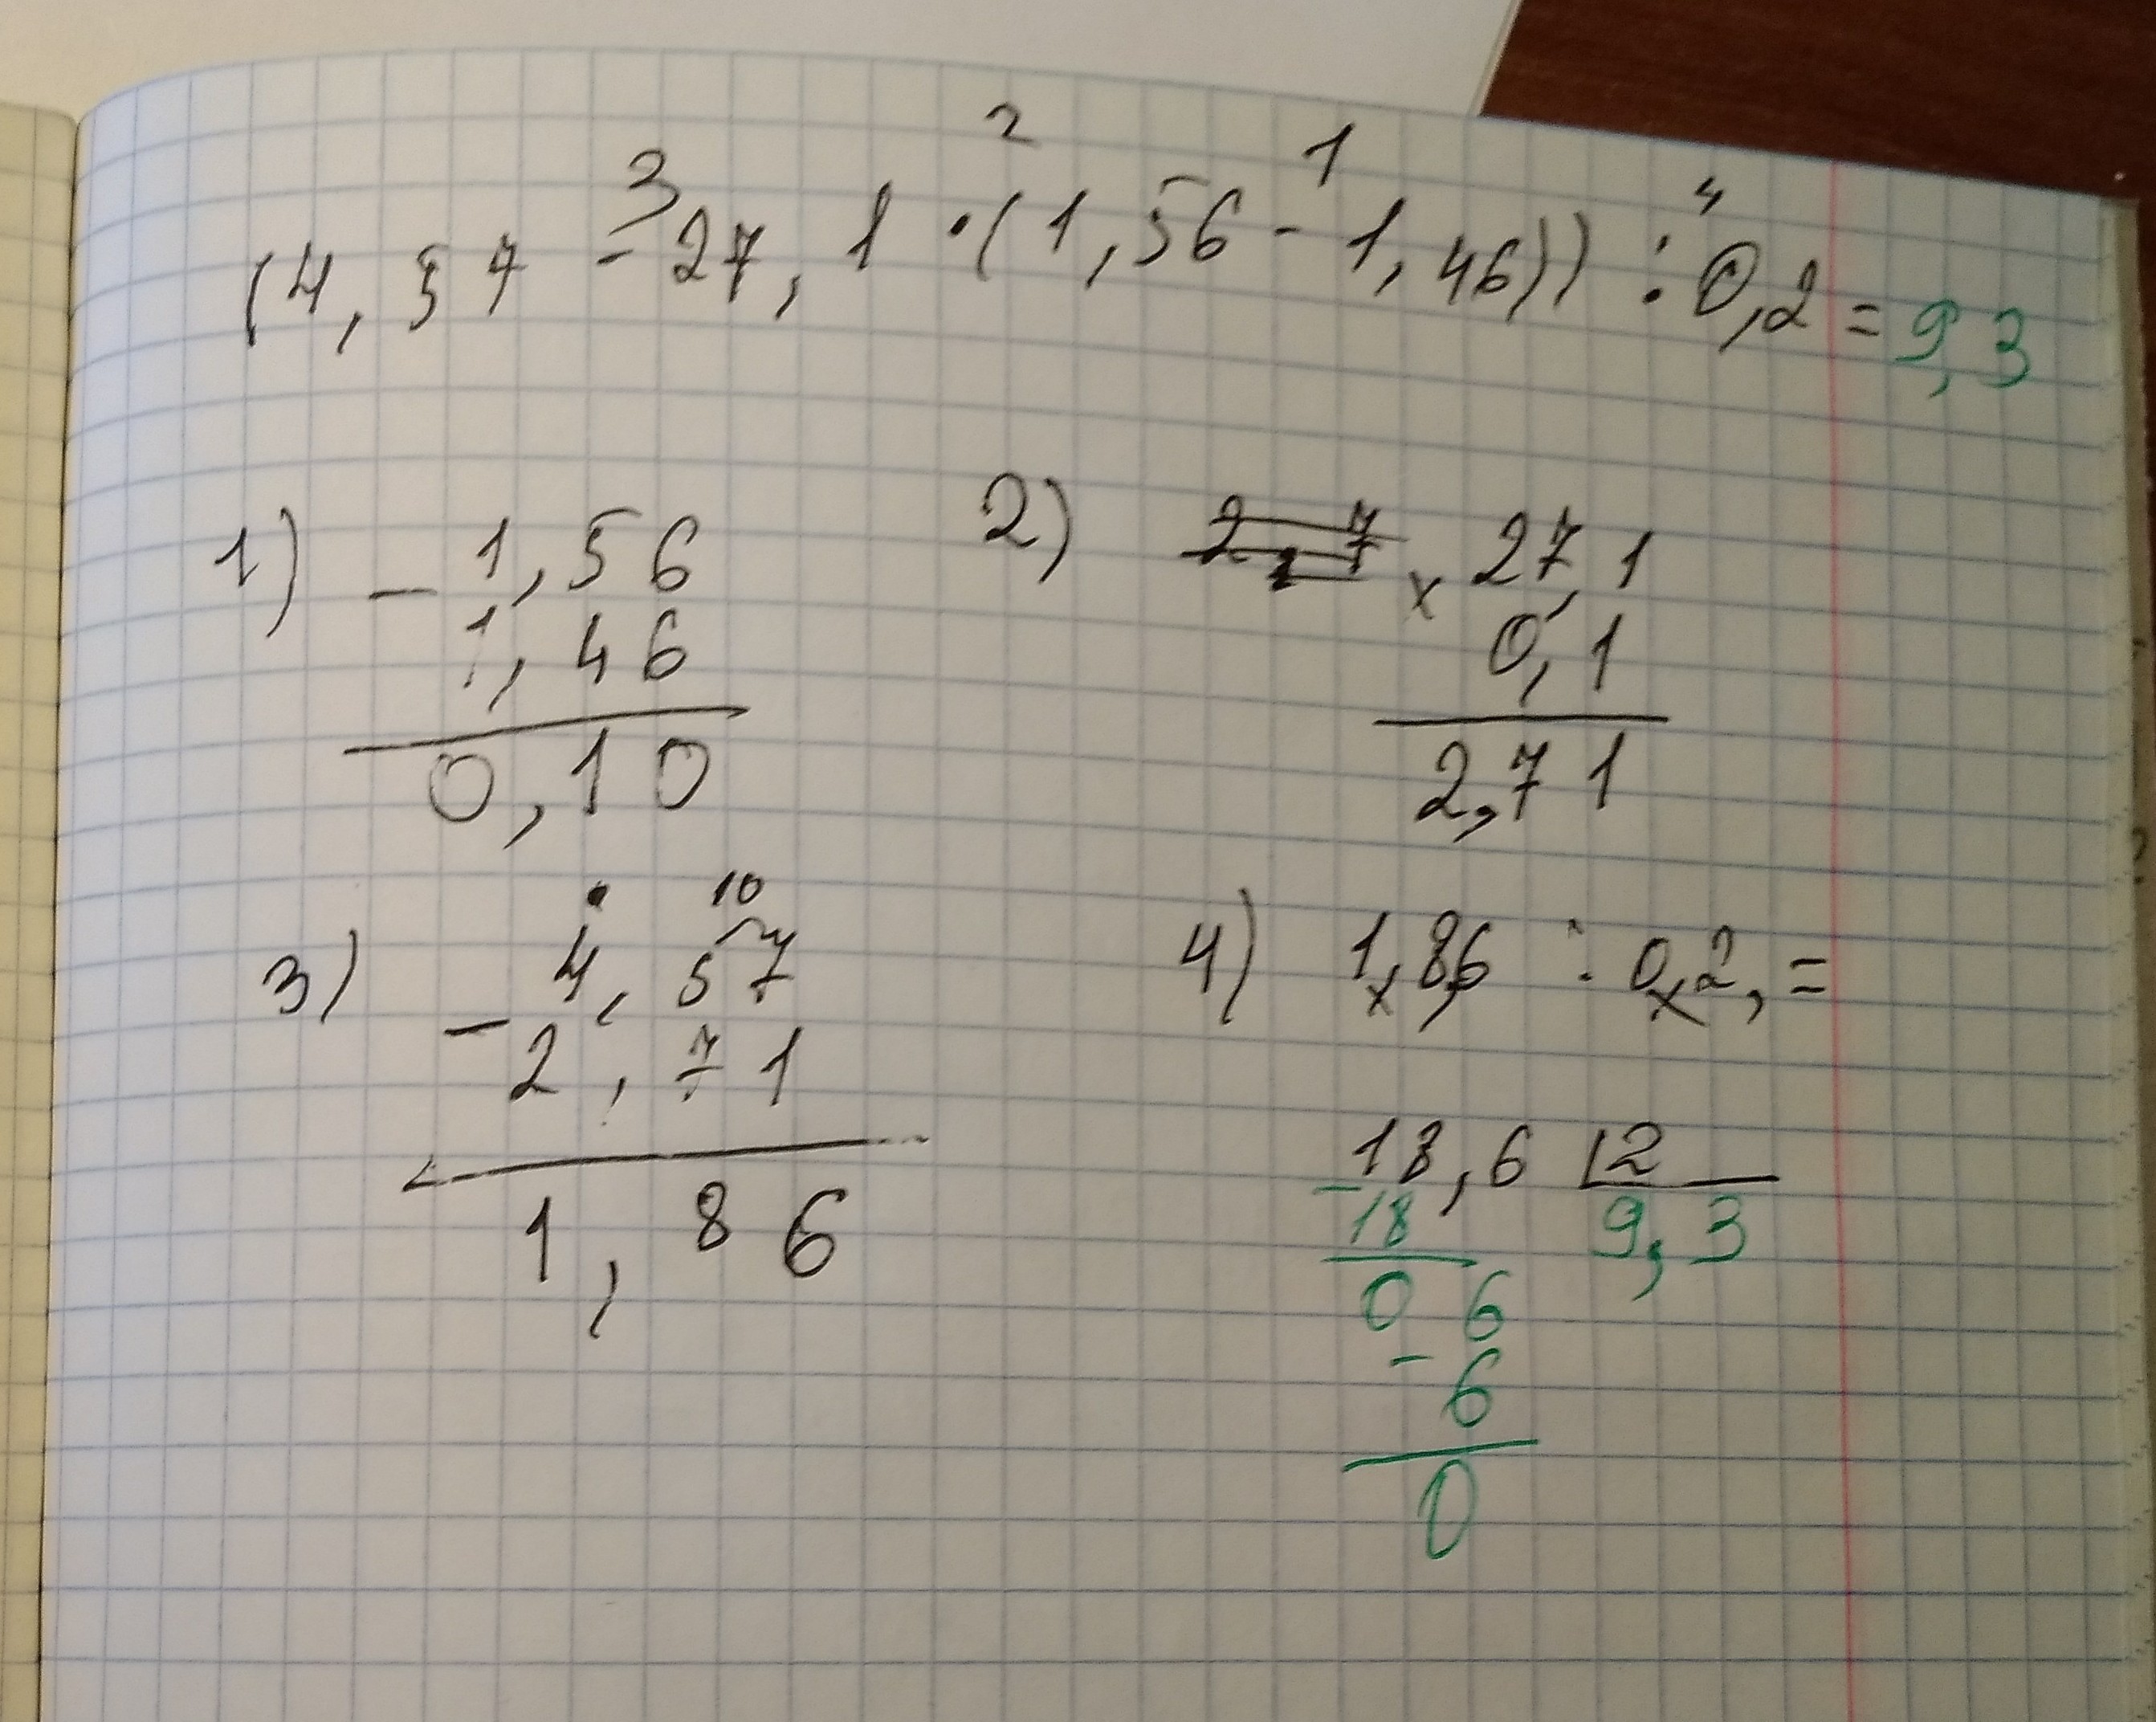 3 2 1 4
(4,57 - 27,1 · (1,56 - 1,46)) : 0,2 = 9,3
1) - 1,56
1,46
0,10
2) 2,7 x 27,1
0,1
2,71
10
3) 4,57
- 2,71
1,86
4) 1,86 : 0,2, =
18,6 2
- 18 9,3
0 6
- 6
0